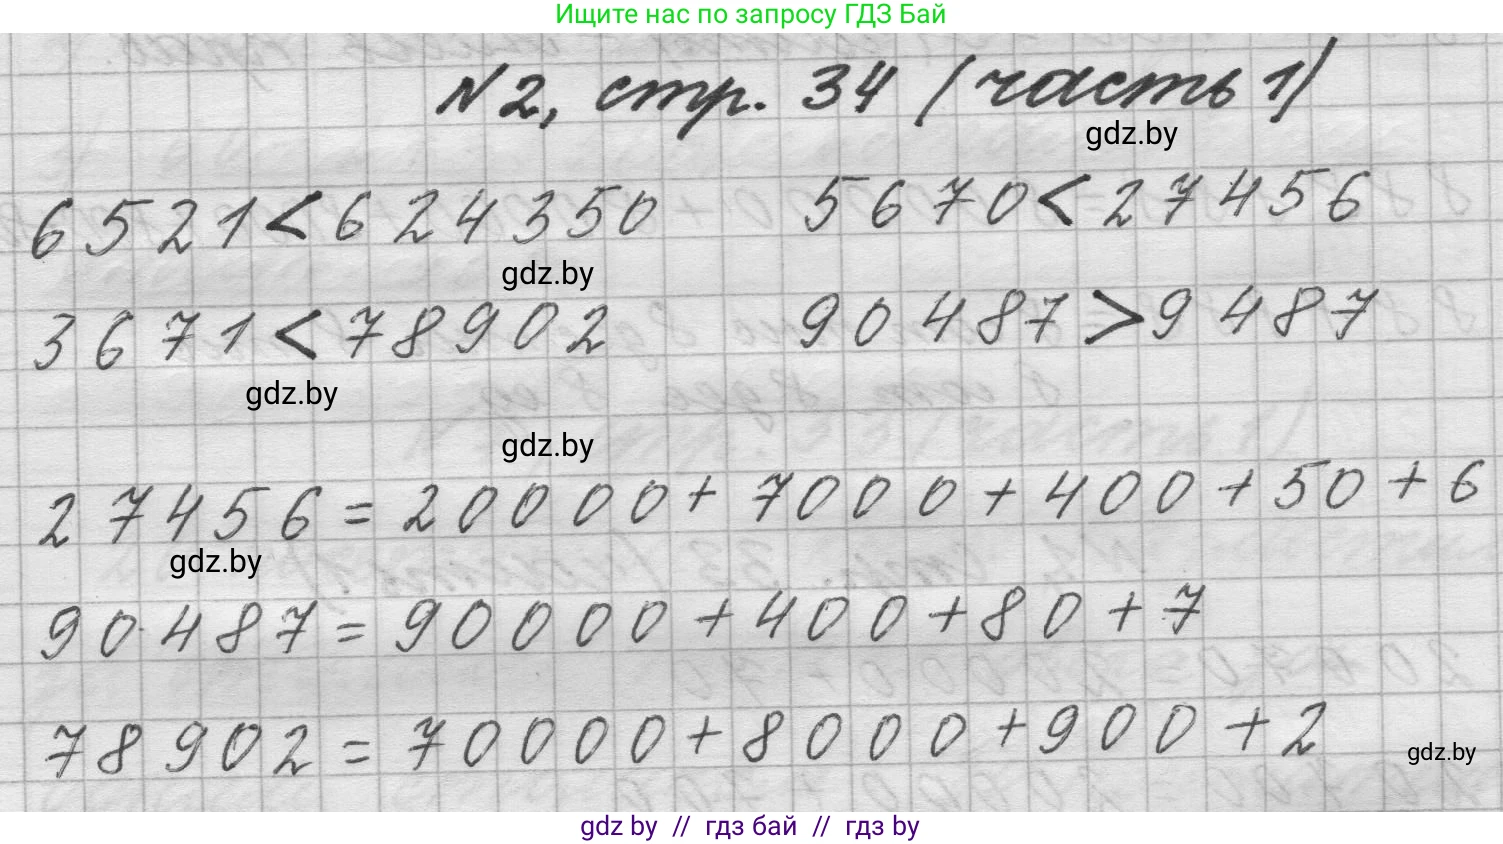 Ищите нас по запросу ГДЗ Бай
N2, стр. 34 (часть 1)
gdz.by
6521<624350 5670<27456
gdz.by
3671<78902 90487>9487
gdz.by
gdz.by
27456=20000+7000+400+50+6
gdz.by
90487=90000+400+80+7
78902=70000+8000+900+2
gdz.by
gdz by // гдз бай // гдз by